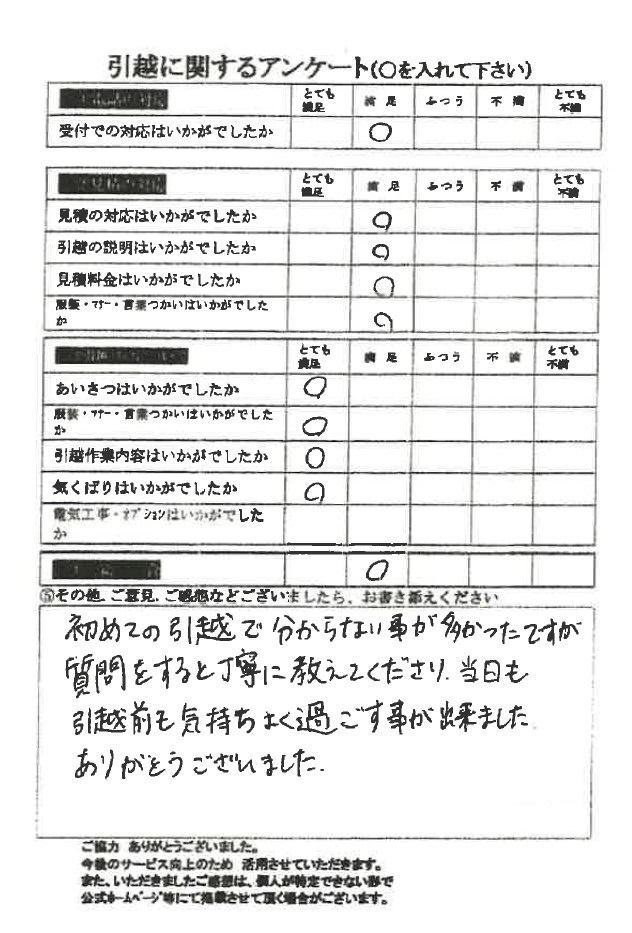 引越に関するアンケート(○を入れて下さい)
とても満足 満足 ふつう 不満 とても不満
受付での対応はいかがでしたか ○
とても満足 満足 ふつう 不満 とても不満
見積の対応はいかがでしたか ○
引越の説明はいかがでしたか ○
見積料金はいかがでしたか ○
服装・マナー・言葉つかいはいかがでした
か ○
とても満足 満足 ふつう 不満 とても不満
あいさつはいかがでしたか ○
服装・マナー・言葉つかいはいかがでした
か ○
引越作業内容はいかがでしたか ○
気くばりはいかがでしたか ○
電気工事・オプションはいかがでした
か
○
⑤その他、ご意見、ご感想などございましたら、お書き添えください
初めての引越で分からない事が多かったですが
質問をすると丁寧に教えてくださり、当日も
引越前も気持ちよく過ごす事が出来ました。
ありがとうございました。
ご協力 ありがとうございました。
今後のサービス向上のため 活用させていただきます。
また、いただきましたご感想は、個人が特定できない形で
公式ホームページ等にて掲載させて頂く場合がございます。